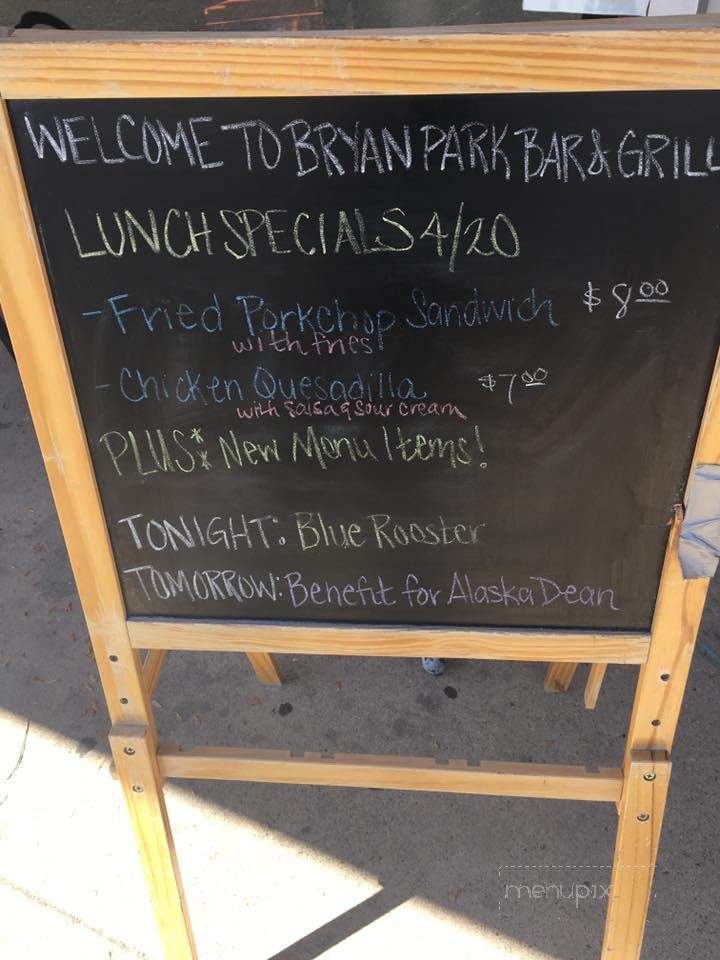 WELCOME TO BRYAN PARK BAR & GRILL
LUNCH SPECIALS 4/20
- Fried Porkchop Sandwich $8.00
with fries
- Chicken Quesadilla $7.00
with salsa & sour cream
PLUS: New Menu Items!
TONIGHT: Blue Rooster
TOMORROW: Benefit for Alaska Dean
menupix